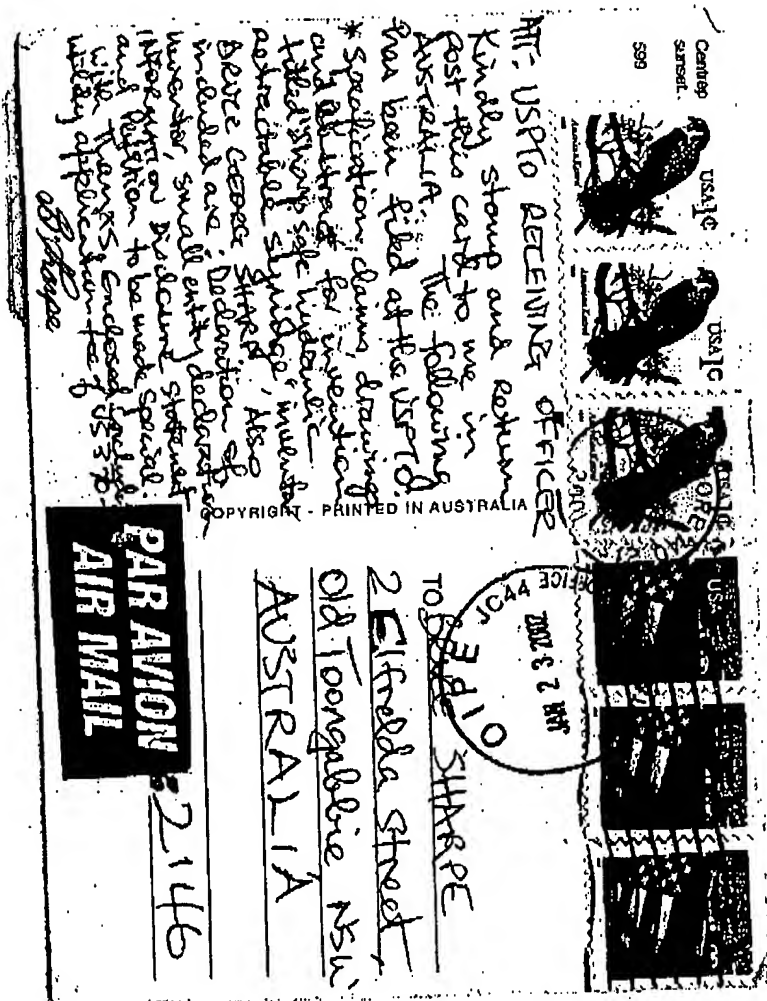 Centrep
sunset.
S99
USA 1c
American Kestrel
USA 1c
American Kestrel
USA
ATT- USPTO RECEIVING OFFICER
Kindly stamp and return
post this card to me in
AUSTRALIA. The following
has been filed at the USPTO.
* Specification, claims, drawings
and abstract for invention
titled "Sharp safe hydraulic
retractable syringe", inventor
BRUCE GEORGE SHARPE. Also
included are, Declaration of
inventor, small entity declaration
INFORMATION Disclosure Statement
and Petition to be made special.
with Thanks Enclosed
utility application fee of US 370-
BSharpe
COPYRIGHT - PRINTED IN AUSTRALIA
OIPE
JC44
JAN 23 2002
OFFICE
TO BRUCE SHARPE
2 Elfrelda Street,
Old Toongabbie NSW
AUSTRALIA
2146
PAR AVION
AIR MAIL